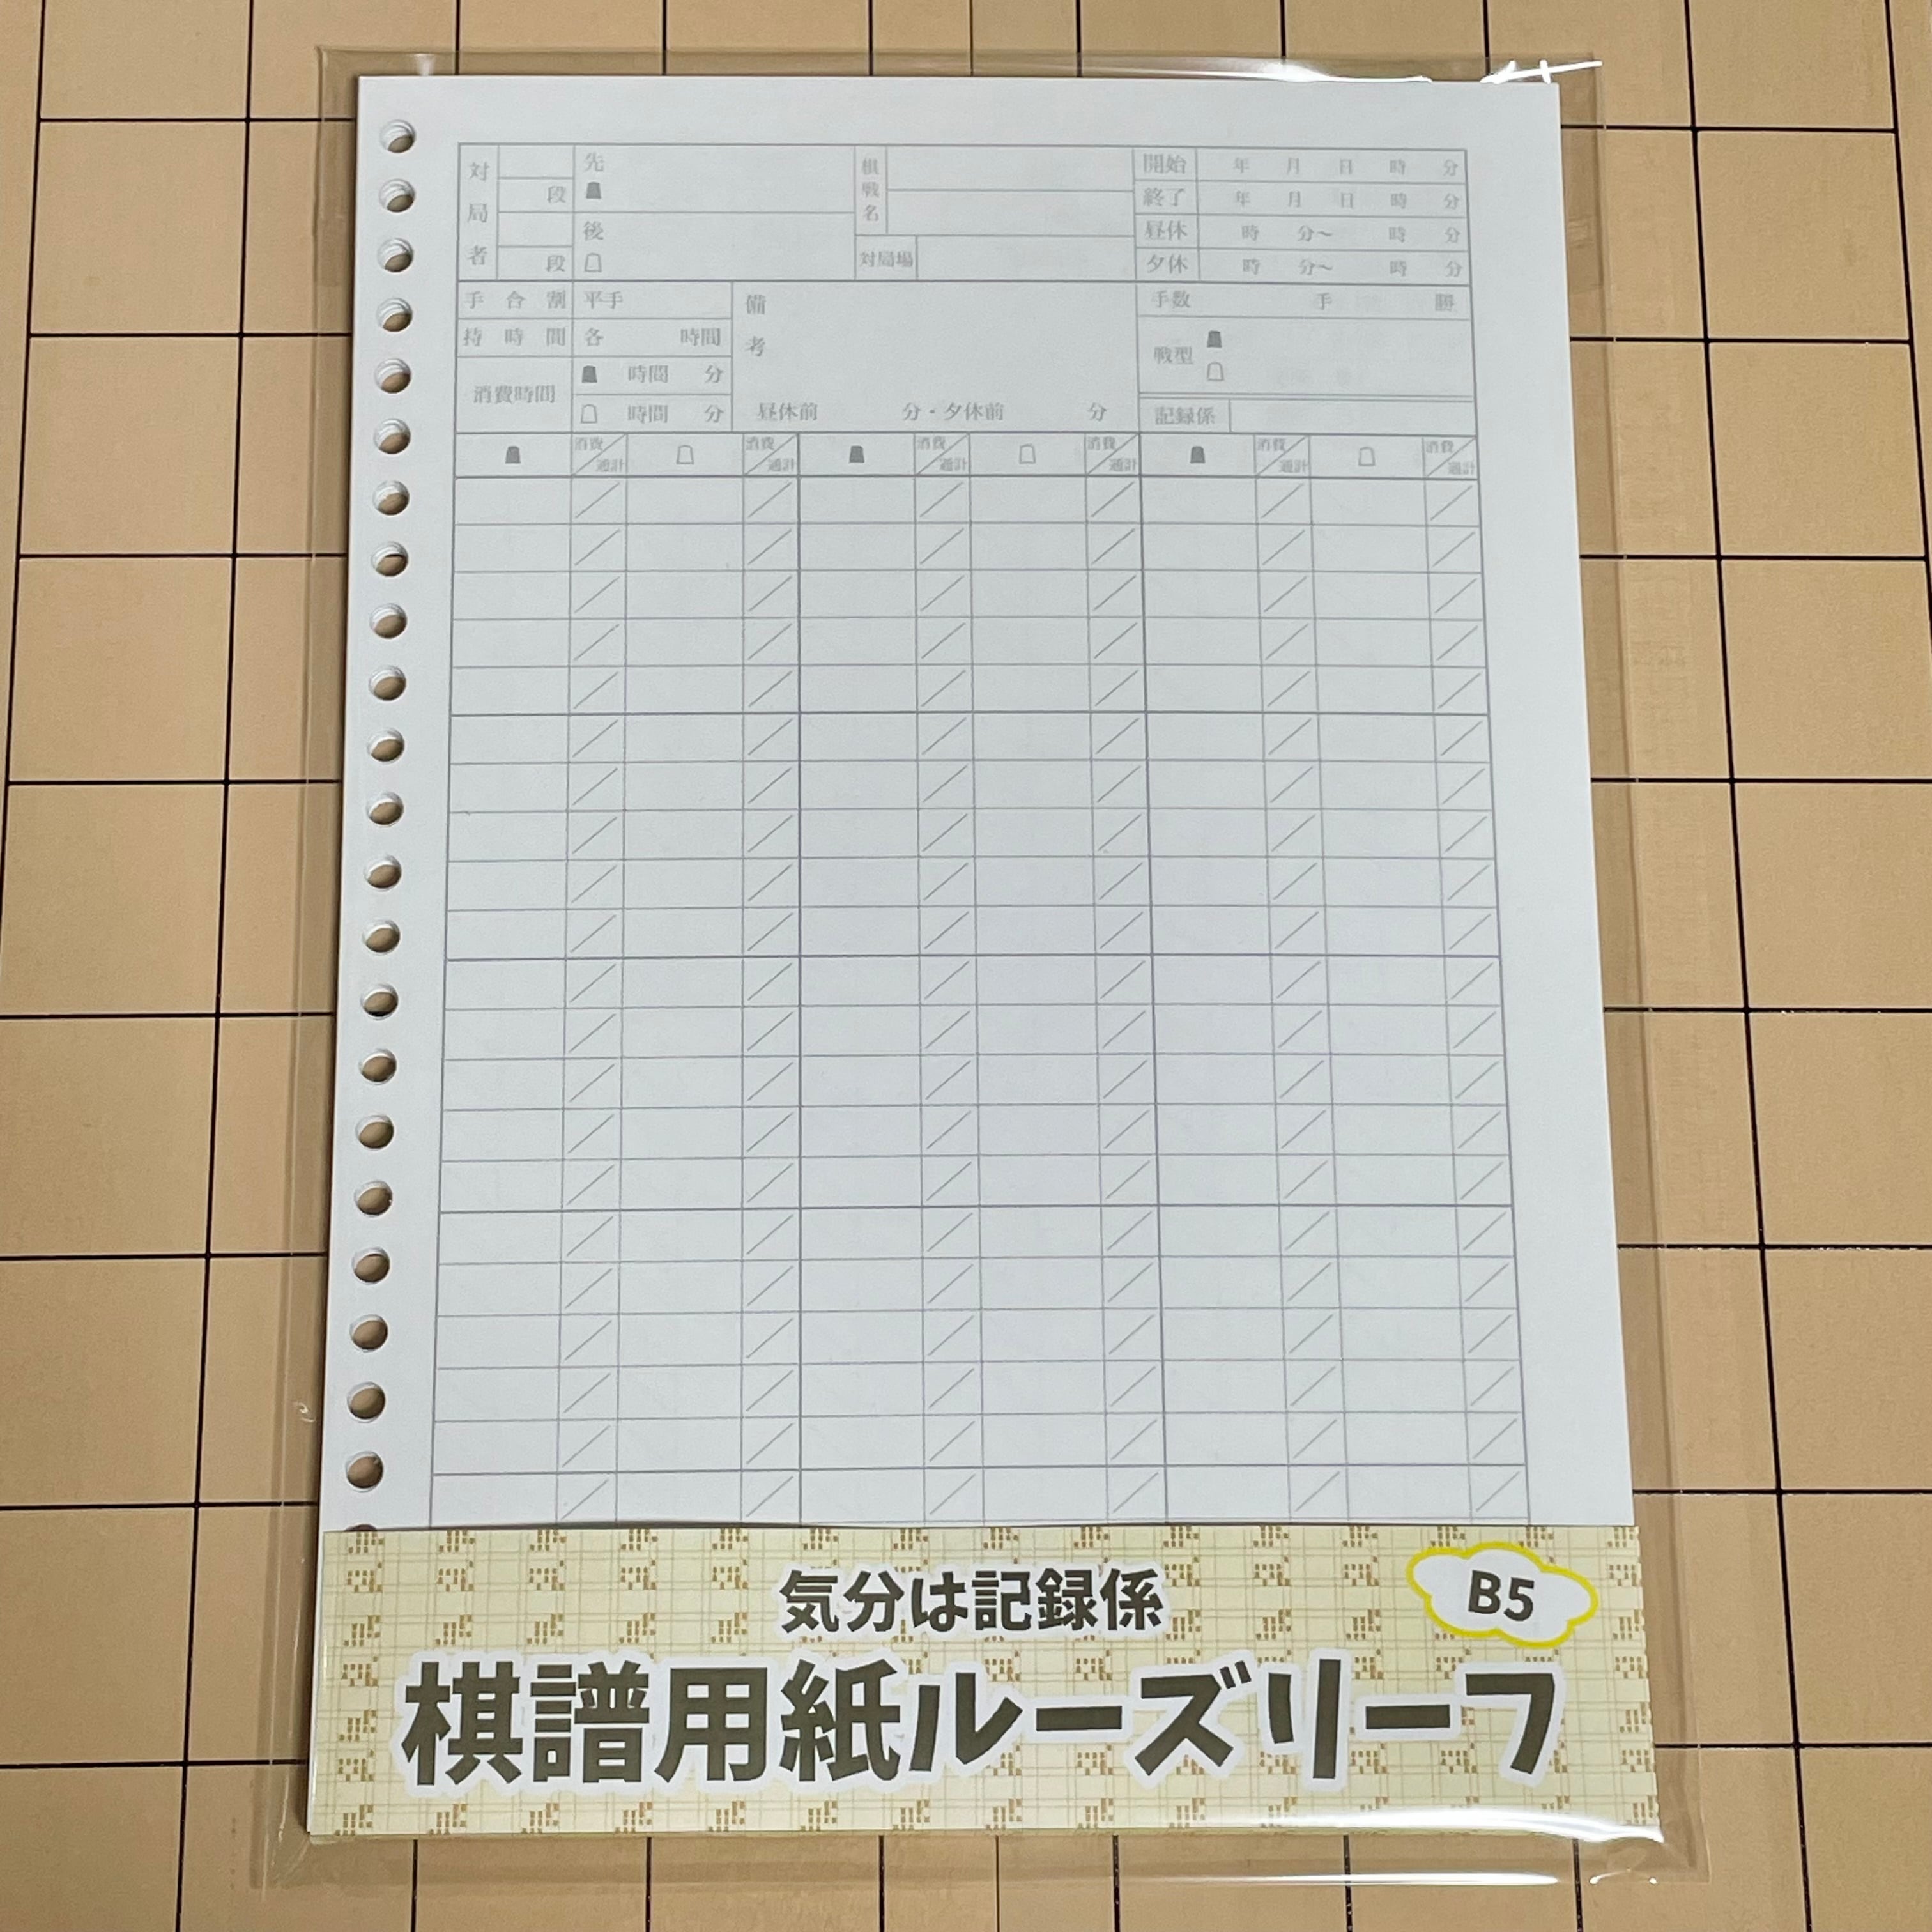 対局者 段 先 ☗
段 後 ☖
棋戦名
対局場
開始 年 月 日 時 分
終了 年 月 日 時 分
昼休 時 分〜 時 分
夕休 時 分〜 時 分
手合割 平手
持時間 各 時間
消費時間 ☗ 時間 分
☖ 時間 分
備考
昼休前 分・夕休前 分
手数 手 勝
戦型 ☗ ☖
記録係
☗ 消費/通計 ☖ 消費/通計 ☗ 消費/通計 ☖ 消費/通計 ☗ 消費/通計 ☖ 消費/通計
気分は記録係
B5
棋譜用紙ルーズリーフ